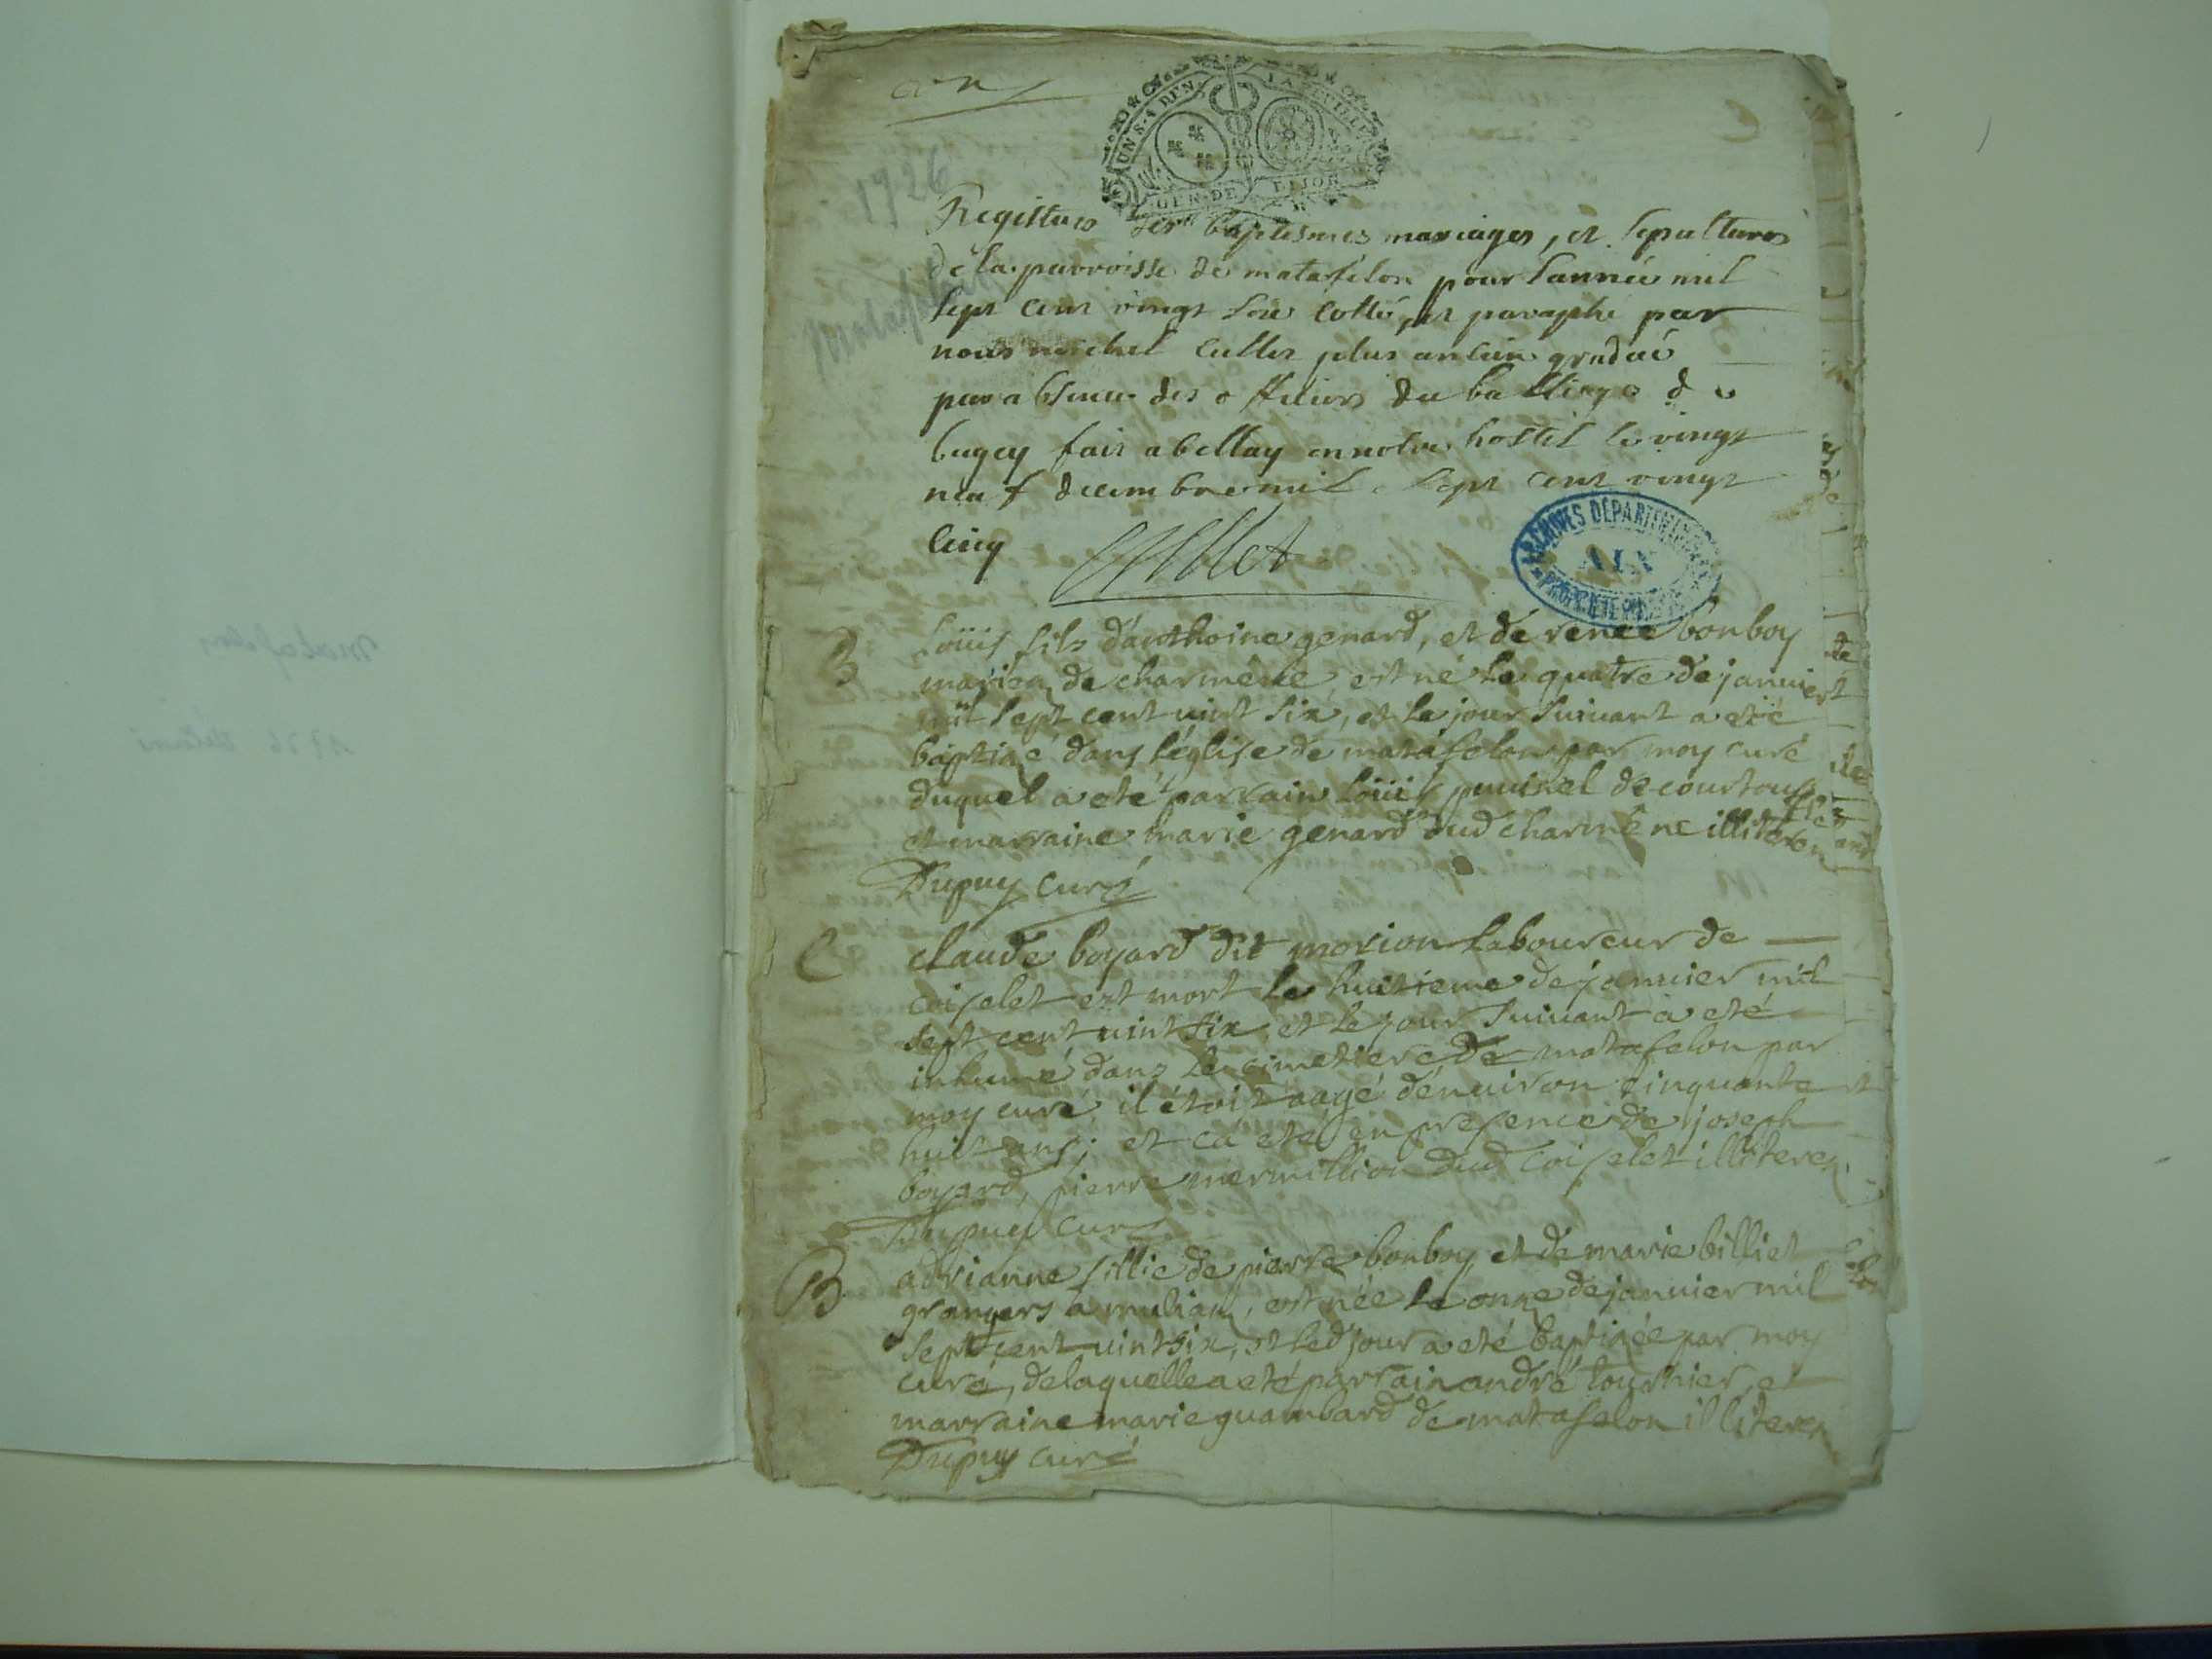 1726
Matafelon
UN S. 4 DEN LA FEUILLE
GEN DE DIJON
Registure des baptesmes mariages, et sepultures
de la parroisse de matafelon pour l'année mil
sept cent vingt six cotté, et paraphé par
nous michel cullet plus ancien gradué
par absence des officiers du balliage du
bugey fait a bellay en notre hostel le vingt
neuf decembre mil sept cent vingt
cinq Cullet
ARCHIVES DÉPARTEMENTALES
AIN
B
Loüis fils d'anthoine genard, et de renée bonboy
mariéz de charmene, est né le quatre de januier
mil sept cent uint six, et le jour suiuant a eté
baptizé dans l'église de matafelon par moy curé
duquel a eté parrain Loüis de courtouflet
et marraine marie genard dud charmene illiterez
Dupuy curé
claude boyard dit morion laboureur de
coiselet est mort le huitieme de januier mil
sept cent uint six et le jour suiuant a eté
inhumé dans le cimetiere de matafelon par
moy curé, il étoit aagé d'enuiron cinquante et
huit ans; et ca eté en presence de joseph
boyard, pierre mermillion dud coiselet illiterez
Dupuy curé
B
adrianne fillie de pierre bonboy et de marie billiet
grangers a muliau, est née le onze de januier mil
sept cent uint six, et led jour a eté baptizée par moy
curé, de laquelle a eté parrain andré tournier, et
marraine marie guambard de matafelon illiterez
Dupuy curé